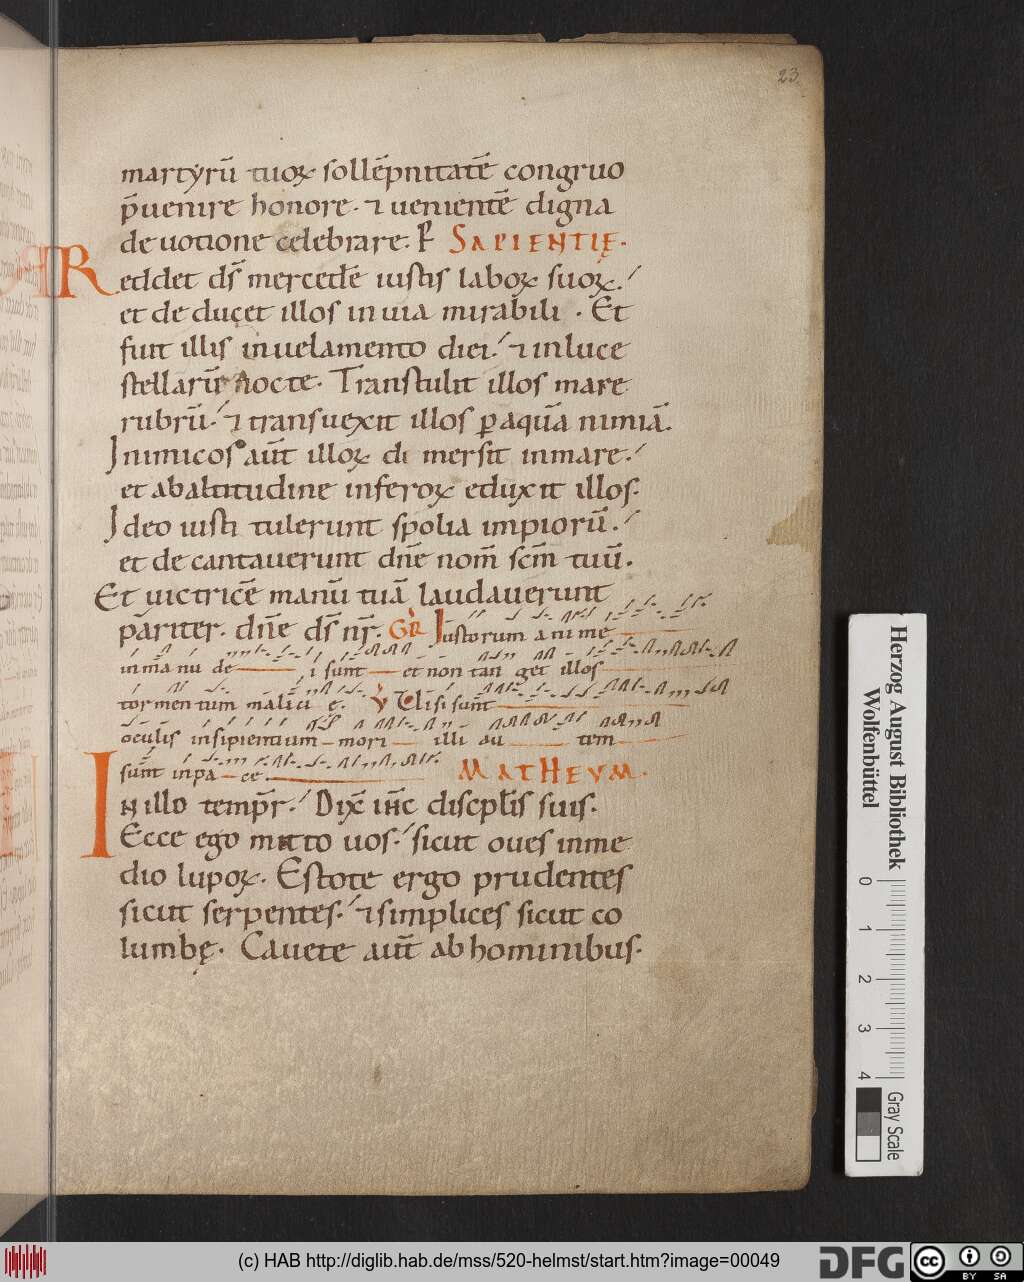 23
martyrū tuoꝝ sollēpnitatē congruo
p̄uenire honore. ⁊ uenientē digna
deuotione celebrare. SAPIENTIĘ.
Reddet ds̄ mercedē iustis laboꝝ suoꝝ.
et deducet illos inuia mirabili. Et
fuit illis inuelamento diei. ⁊ inluce
stellarū nocte. Transtulit illos mare
rubrū. ⁊ transuexit illos ꝑaquā nimiā.
Inimicos aūt illoꝝ dimersit inmare.
et abaltitudine inferoꝝ eduxit illos.
Ideo iusti tulerunt spolia impiorū.
et decantauerunt dn̄e nom̄ scm̄ tuū.
Et uictricē manū tuā laudauerunt
pariter. dn̄e ds̄ nr̄. GR̄ Iustorum anime
inmanu dei sunt et non tanget illos
tormentum malicie. V Uisi sunt
oculis insipientium mori illi autem
sunt inpace. MATHEVM.
IN illo temp̄r. Dix̄ ih̄c discip̄lis suis.
Ecce ego mitto uos. sicut oues inme
dio lupoꝝ. Estote ergo prudentes
sicut serpentes. ⁊ simplices sicut co
lumbę. Cauete aūt ab hominibus.
Herzog August Bibliothek
Wolfenbüttel
0 1 2 3 4
Gray Scale
(c) HAB http://diglib.hab.de/mss/520-helmst/start.htm?image=00049
DFG
cc BY SA